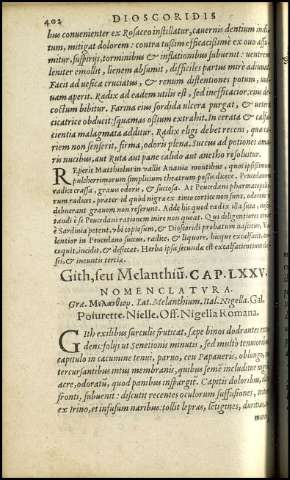 402 DIOSCORIDIS
bus convenienter ex Rosaceo instillatur, cavernis dentium indi
tum, mitigat dolorem: contra tussim efficacissimè ex ouo assu
mitur, suspirijs, torminibus & inflationibus subuenit: ventrem
leniter emollit, lienem absumit, difficiles partus mirè adiuuat.
Facit ad uesicæ cruciatus, & renum distentiones potum, vul
uam aperit. Radix ad eadem utilis est, sed inefficacior: eius de
coctum bibitur. Farina eius sordida ulcera purgat, & ueteri
cicatrice obducit: squamas ossium extrahit. In cerata & calfa
cientia malagmata additur. Radix eligi debet recens, quæ ca
riem non senserit, firma, odoris plena. Succus ad potiones ama
ris nucibus, aut Ruta aut pane calido aut anetho resoluitur.
REperit Matthiolus in vallis Ananiæ montibus,
pulcherrimarum simplicium theatrum posse dicere. Peucedanum
radice crassa, graui odore, & succosa. At Peucedani pharmacopolæ
rum radices, præter id quod nigra ex
debuerant gnauum non reserunt. Adde hisquod radix illa
Qui diligentiores
è Sardinia petent, vbi copiosum, & Dioscoridi probatum nascitur.
lentior in Peucedano succus, radice, & liquore,
caquit, incidit, & desiccat. Herba ipsa secunda est excalfacientium
sis, & ineuntis tertia.
Gith, seu Melanthiũ. CAP. LXXV.
NOMENCLATVRA.
Græ. Μελάνθιον. Lat. Melanthium. Ital. Nigella. Gal.
Poiurette. Nielle. Off. Nigella Romana.
GIth exilibus surculis fruticat, sæpe binos dodrantes
dens: folijs ut Senetionis minutis, sed multò tenuioribus
capitulo in cacumine tenui, paruo, ceu Papaueris, oblongo,
tercursantibus intus membranis, quibus semẽ includitur
acre, odoratũ, quod panibus inspargit. Capitis doloribus,
fronti, subuenit: discutit recentes oculorum suffusiones,
ex irino, et infusum naribus: tollit lepras, letigines,